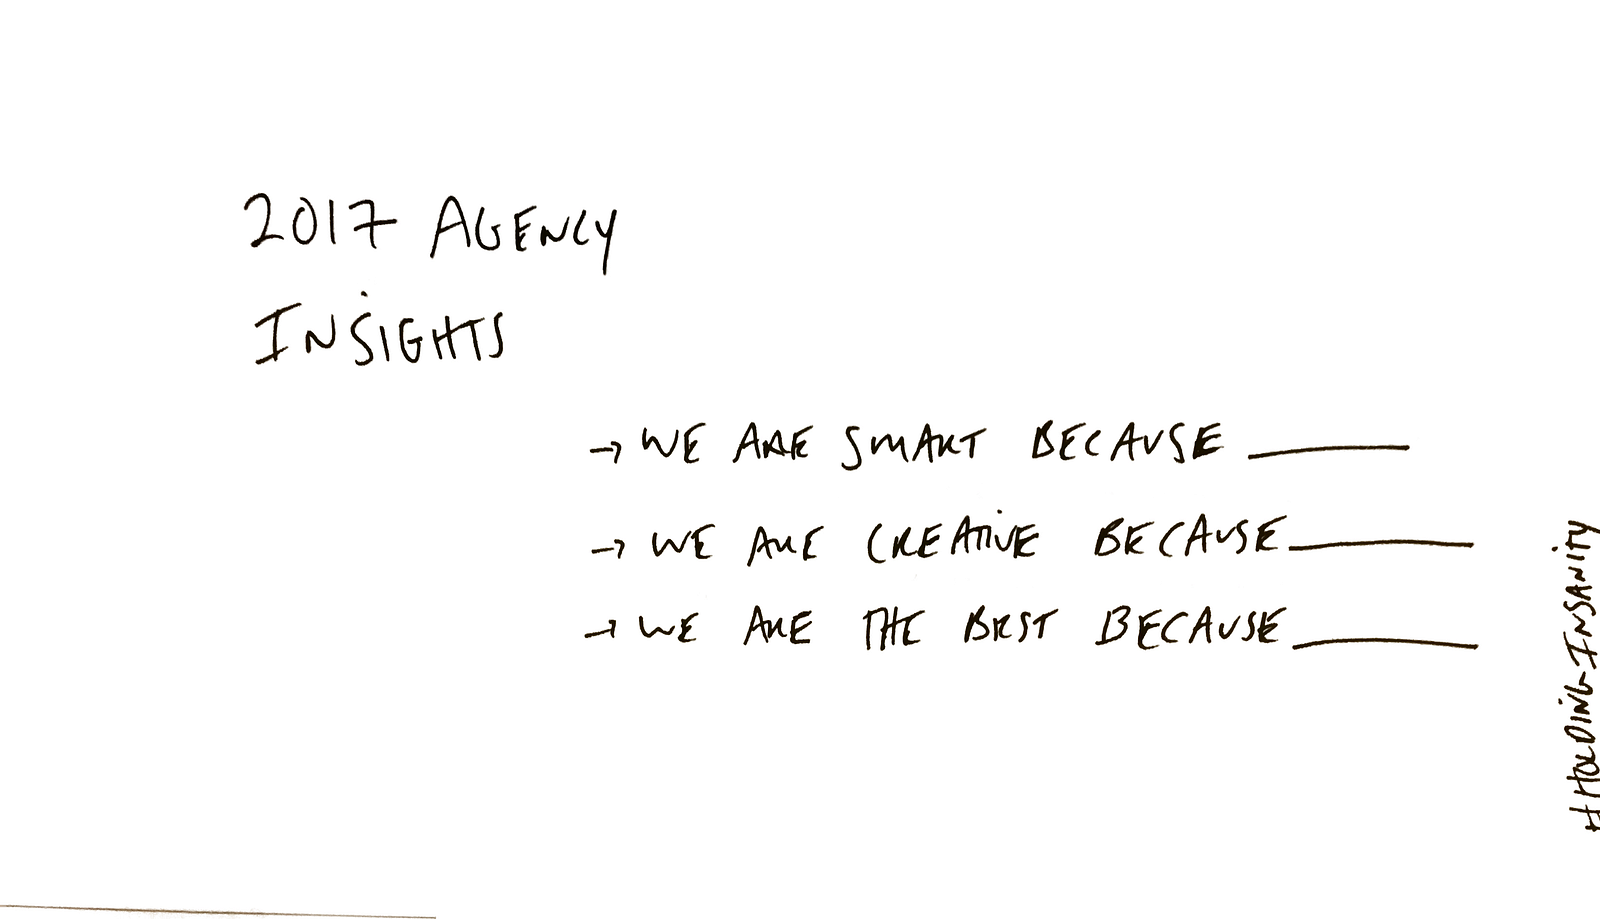 2017 AGENCY
INSIGHTS
→ WE ARE SMART BECAUSE ______
→ WE ARE CREATIVE BECAUSE ______
→ WE ARE THE BEST BECAUSE ______
#HOLDINGINSANITY